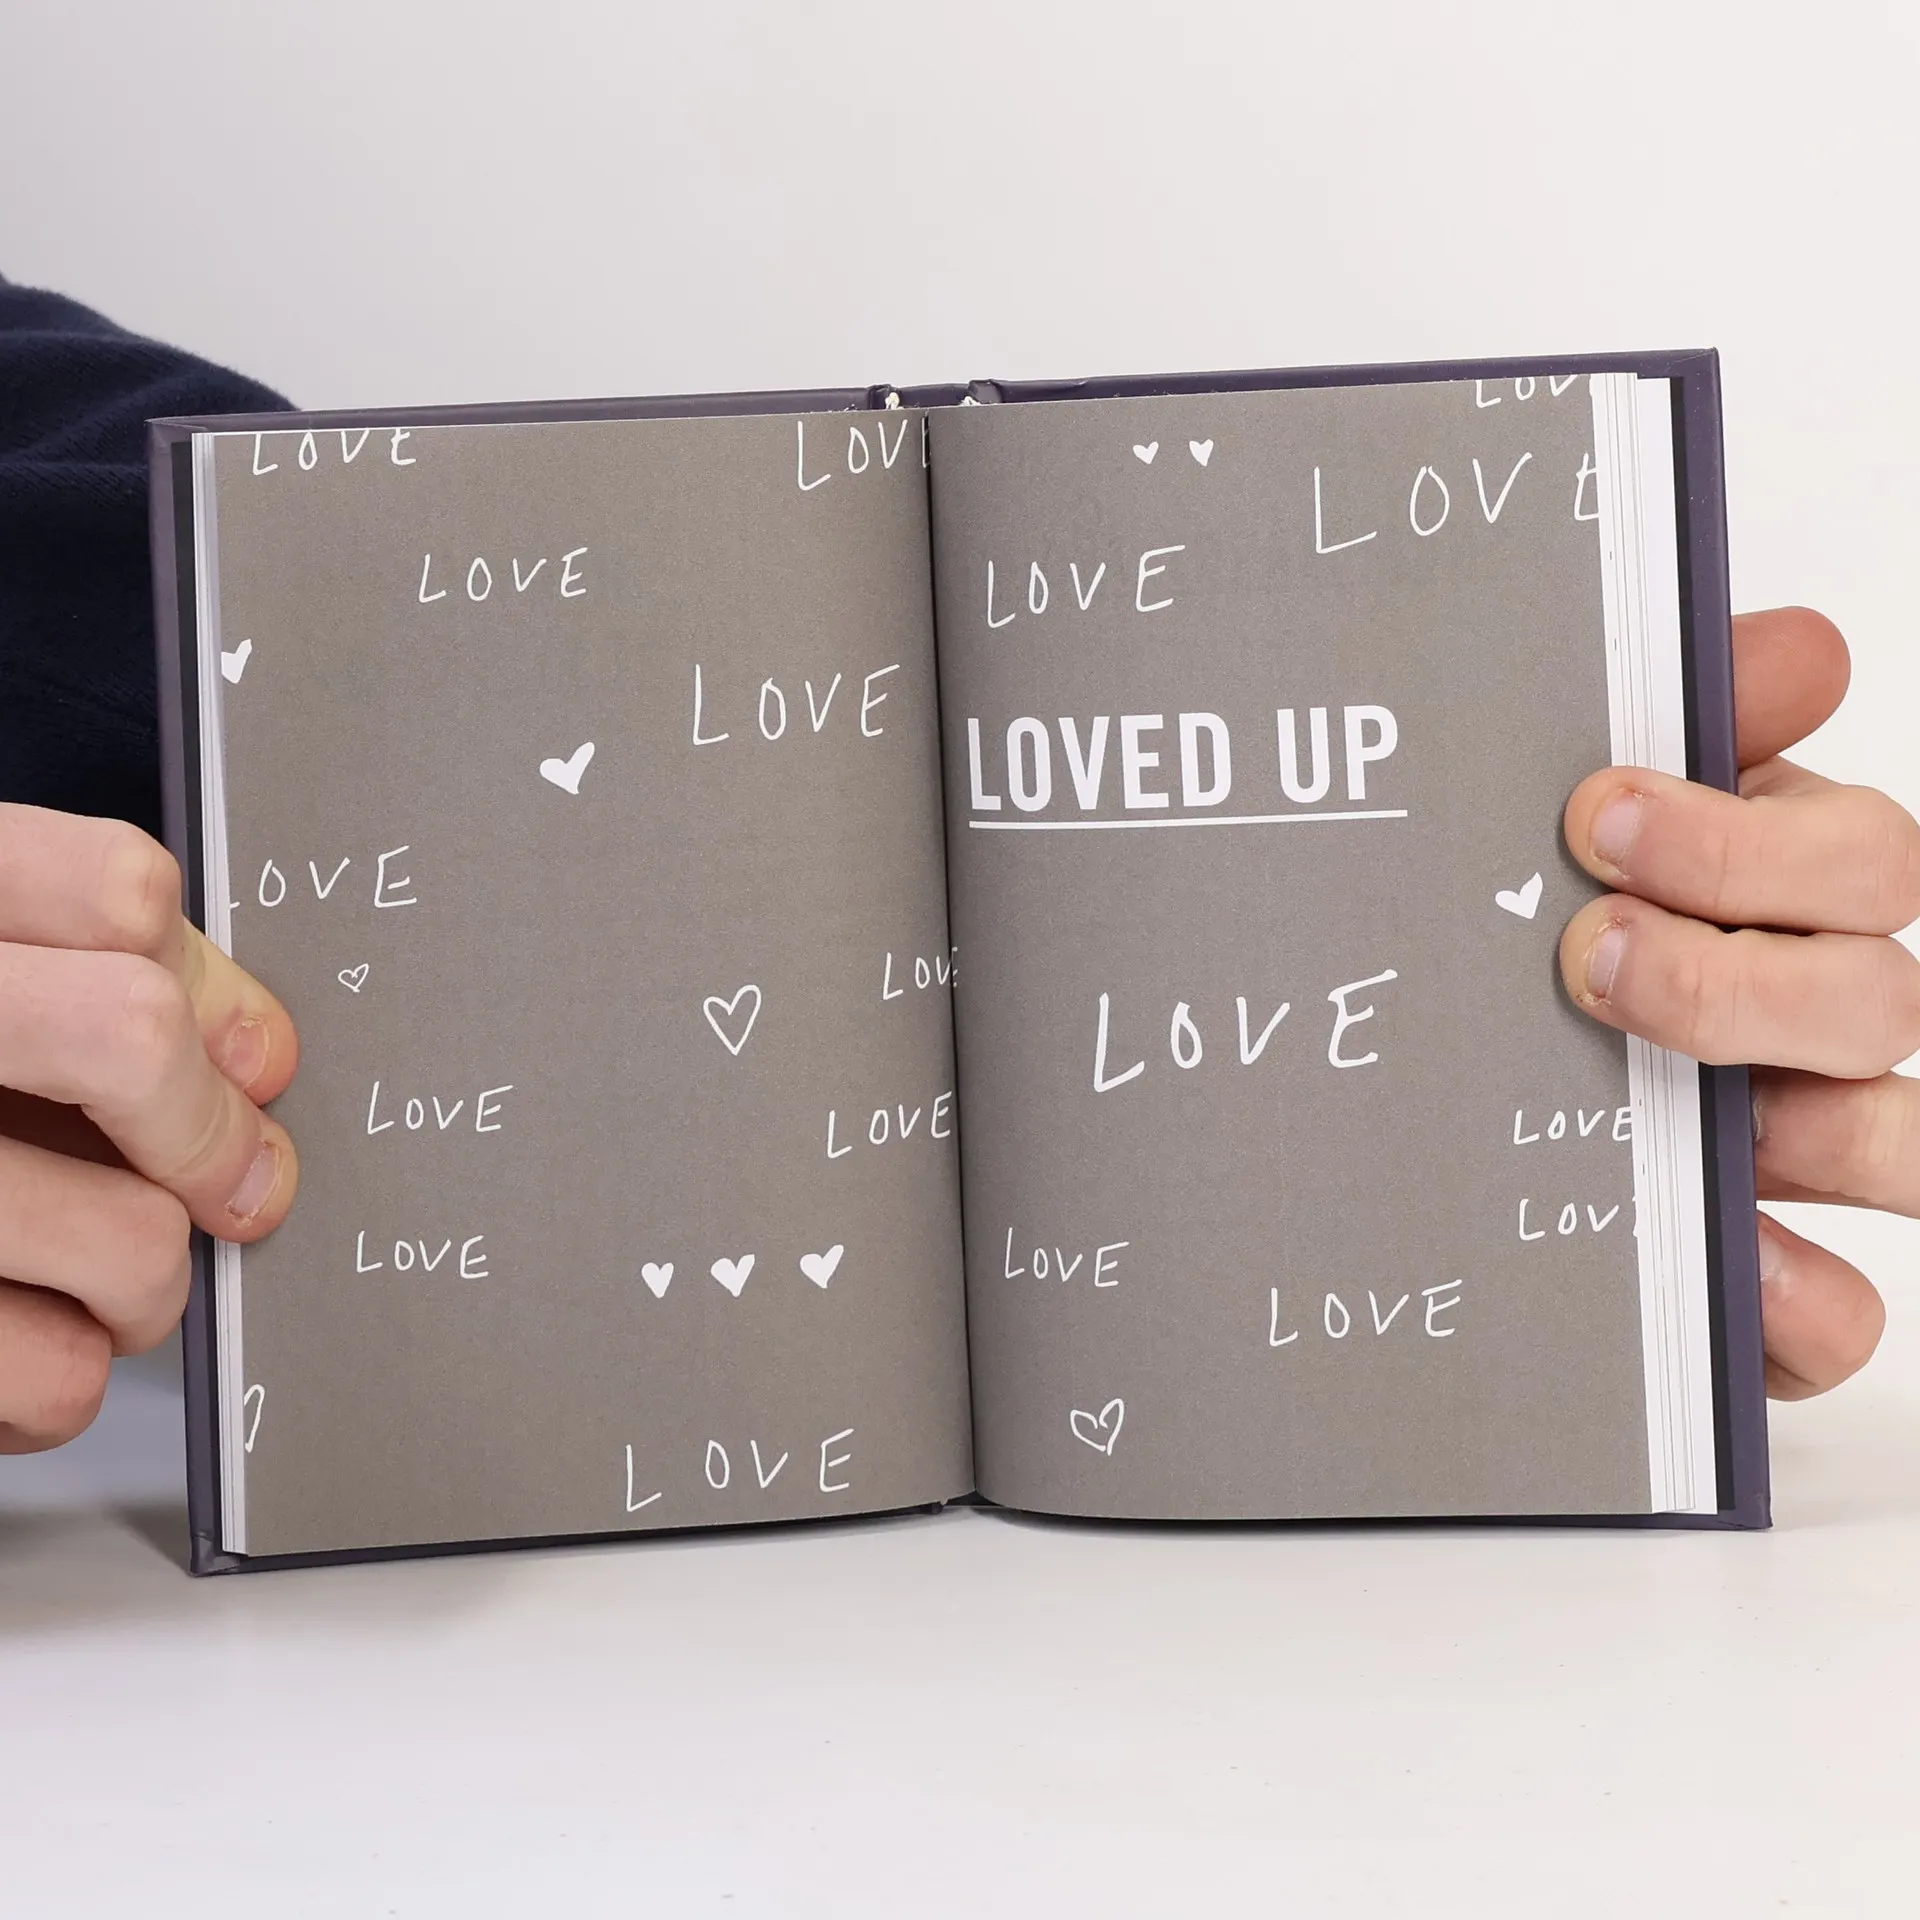 LOVE
LOV
LOVE
LOVE
OVE
LOVE
LOVE
LOVE
LOVE
LOVE
LOV
LOVE
LOVE
LOVED UP
LOVE
LOVE
LOV
LOVE
LOVE